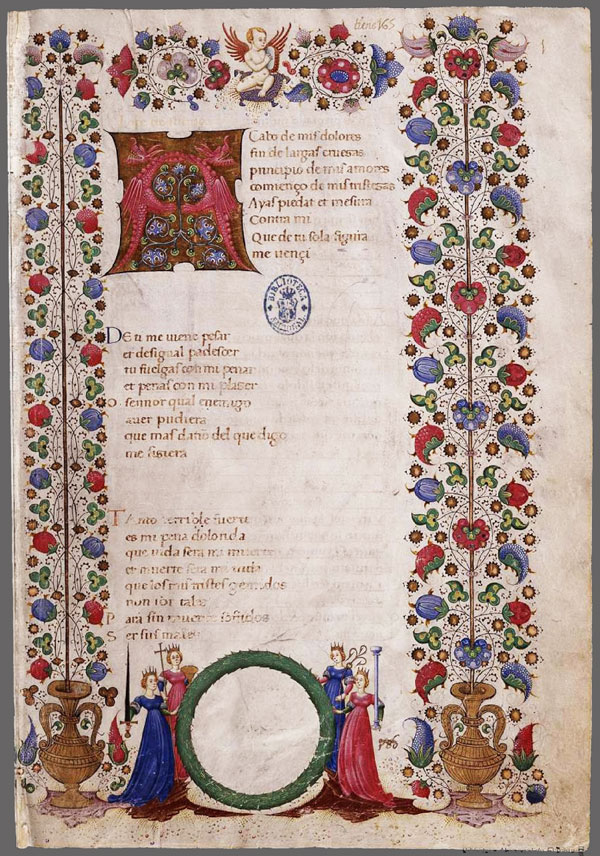 tiene 165
1
A Cabo de mis dolores
fin de largas cruesas
principio de mis amores
comienço de mis tristesas
Ayas piedat et mesura
Contra mi
Que de tu sola figura
me vençi
BIBLIOTECA
DE ti me viene pesar
et desigual padesçer
tu fuelgas con mi penar
et penas con mi plaser
O sennor qual enemigo
auer pudiera
que mas daño del que digo
me fisiera
TAnto terrible fuerte
es mi pena dolorida
que vida sera mi muerte
et muerte sera mi vida
que los mis tristes gemidos
non son tales
Para sin
Ser sus